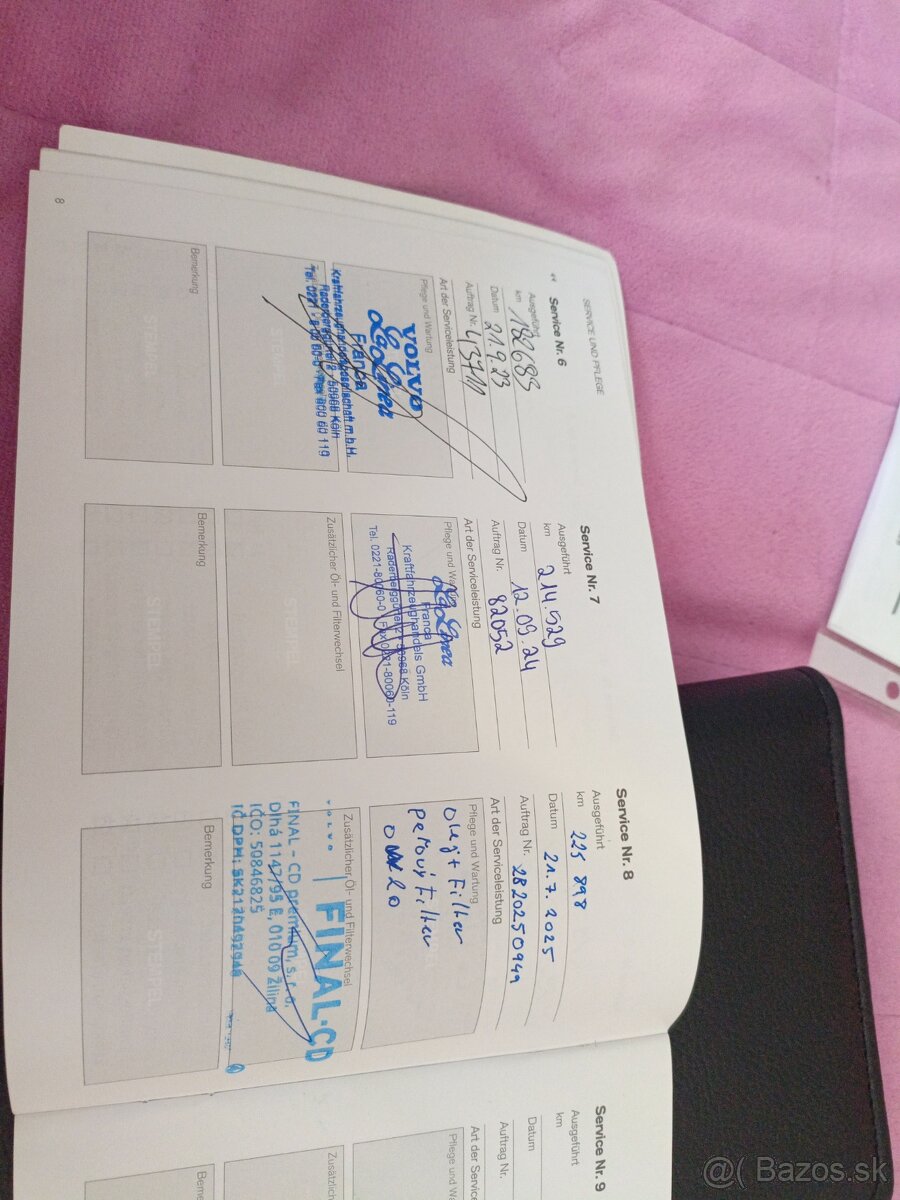 SERVICE UND PFLEGE
Service Nr. 6
Ausgeführt
km 182689
Datum 21.9.23
Auftrag Nr. 43710
Art der Serviceleistung
Pflege und Wartung
VOLVO
La Linea
Franca
Kraftfahrzeughandelsgesellschaft m.b.H.
50968 Köln
Bemerkung
Service Nr. 7
Ausgeführt
km 214.529
Datum 12.09.24
Auftrag Nr. 82052
Art der Serviceleistung
Pflege und
La Linea
Franca
Kraftfahrzeughandels GmbH
Raderberggürtel 2 · 50968 Köln
Tel. 0221-80060-0 Fax 0221-80060-119
Zusätzlicher Öl- und Filterwechsel
Bemerkung
Service Nr. 8
Ausgeführt
km 225 898
Datum 21.7.2025
Auftrag Nr.
Art der Serviceleistung
Pflege und Wartung
olej + Filter
peľový Filter
Zusätzlicher Öl- und Filterwechsel
VOLVO FINAL-CD
FINAL - CD premium, s. r. o.
Dlhá 1147/95 E, 010 09 Žilina
IČO: 50846825
IČ DPH:
Bemerkung
8
Service Nr. 9
Ausgeführt
km
Datum
Auftrag Nr.
Art der Service
Pflege und Wa
Zusätzlic
Beme
@( Bazos.sk